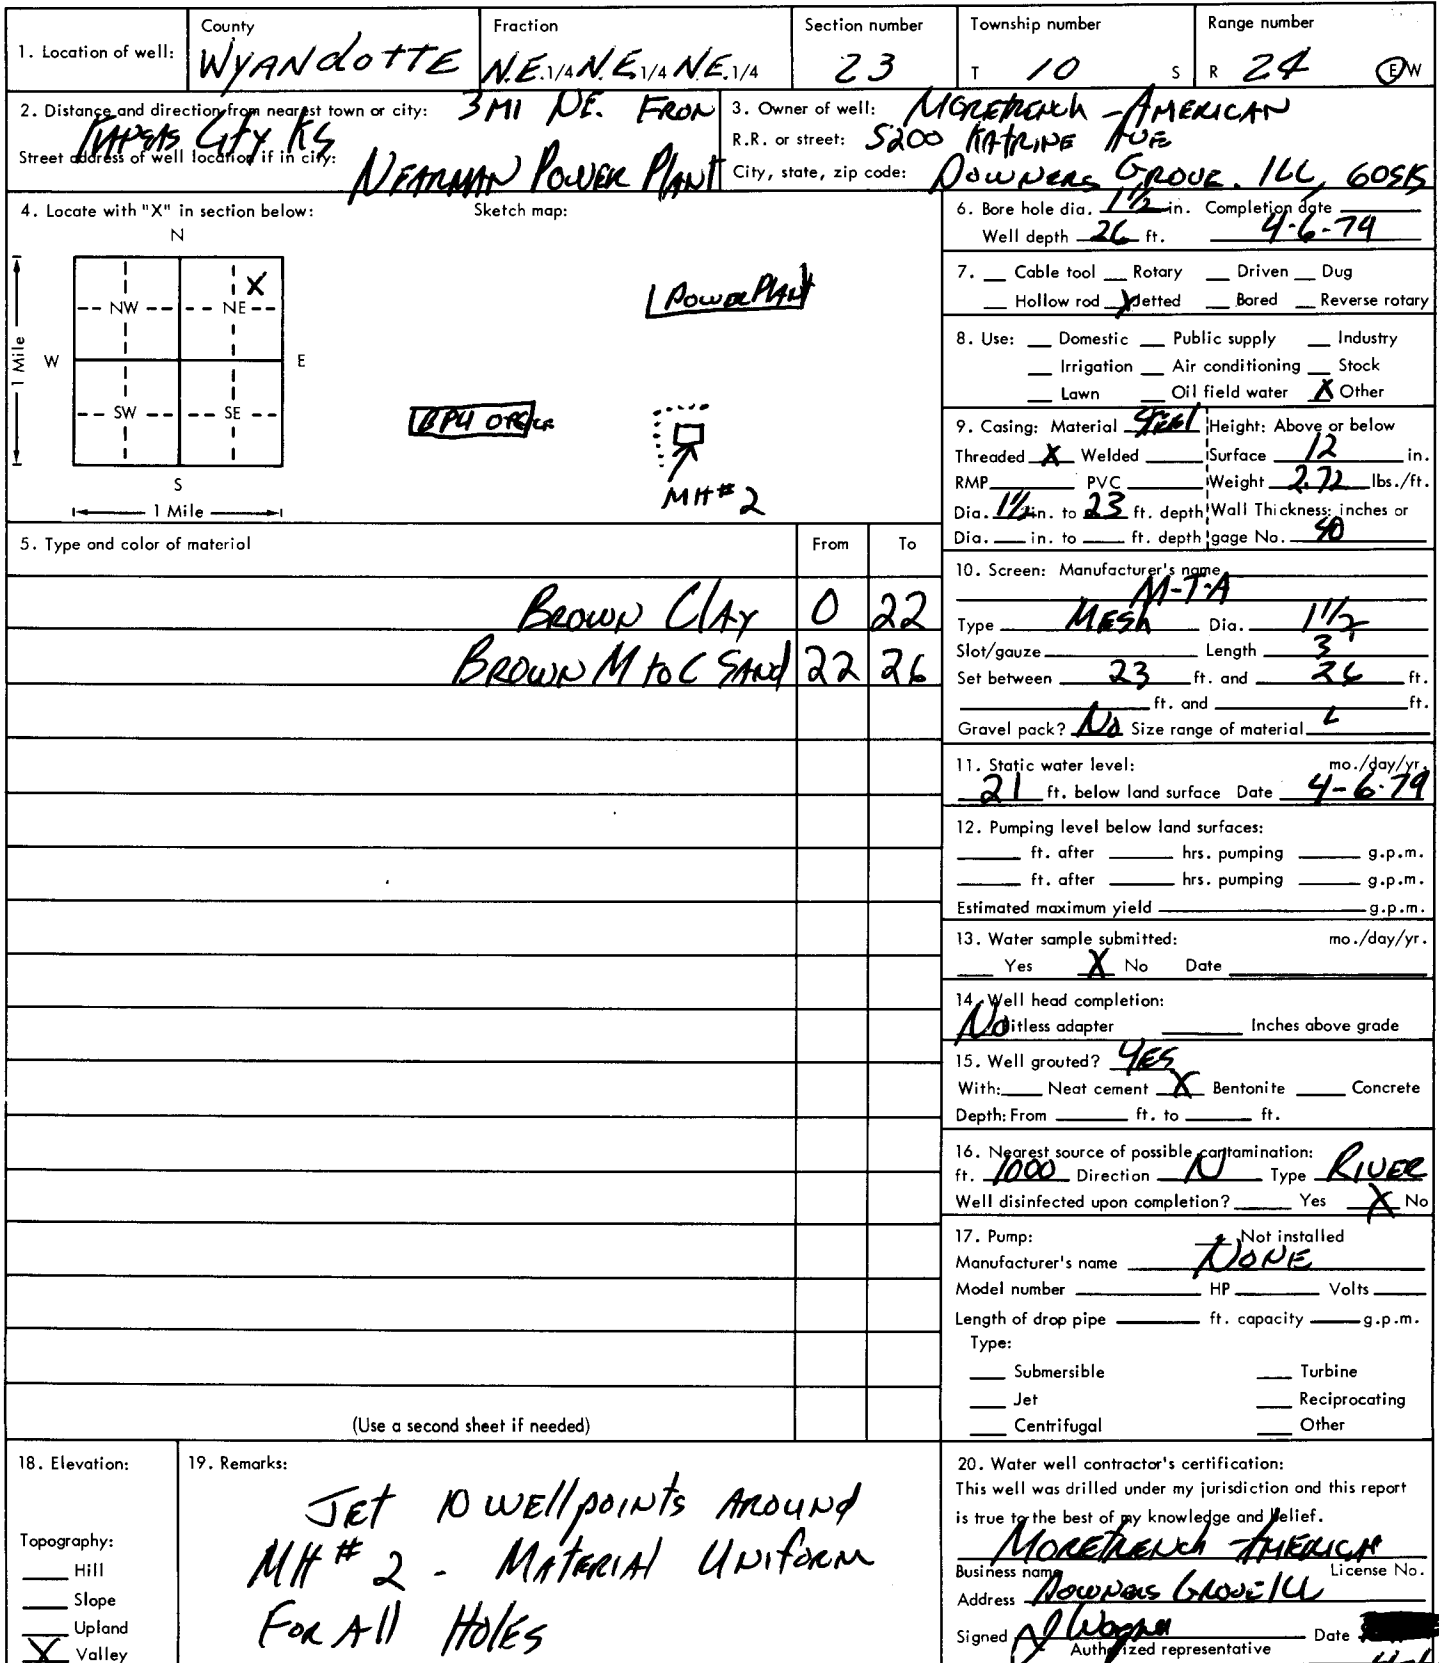 1. Location of well:
County
WYANdOTTE
Fraction
N.E. 1/4 N.E. 1/4 N.E. 1/4
Section number
23
Township number
T 10 S
Range number
R 24 E W
2. Distance and direction from nearest town or city: 3 MI NE. FROM
KANSAS City KS
Street address of well location if in city:
NEARMAN POWER PLANT
3. Owner of well: MORETRENCH - AMERICAN
R.R. or street: 5200 KATRINE AVE
City, state, zip code: DOWNERS GROVE. ILL, 60515
4. Locate with "X" in section below:
Sketch map:
N
X
NW NE
W E
SW SE
S
1 Mile
1 Mile
POWER PLANT
BPU OFFICE
MH# 2
5. Type and color of material From To
BROWN ClAY 0 22
BROWN M to C SANd 22 26
(Use a second sheet if needed)
6. Bore hole dia. 1 1/2 in. Completion date
Well depth 26 ft. 4-6-79
7. Cable tool Rotary Driven Dug
Hollow rod X Jetted Bored Reverse rotary
8. Use: Domestic Public supply Industry
Irrigation Air conditioning Stock
Lawn Oil field water X Other
9. Casing: Material Steel Height: Above or below
Threaded X Welded Surface 12 in.
RMP PVC Weight 2.72 lbs./ft.
Dia. 1 1/2 in. to 23 ft. depth Wall Thickness: inches or
Dia. in. to ft. depth gage No. 40
10. Screen: Manufacturer's name
M-T-A
Type MESH Dia. 1 1/2
Slot/gauze Length 3'
Set between 23 ft. and 26 ft.
ft. and ft.
Gravel pack? No Size range of material
11. Static water level: mo./day/yr.
21 ft. below land surface Date 4-6-79
12. Pumping level below land surfaces:
ft. after hrs. pumping g.p.m.
ft. after hrs. pumping g.p.m.
Estimated maximum yield g.p.m.
13. Water sample submitted: mo./day/yr.
Yes X No Date
14. Well head completion:
No Pitless adapter Inches above grade
15. Well grouted? YES
With: Neat cement X Bentonite Concrete
Depth: From ft. to ft.
16. Nearest source of possible contamination:
ft. 1000 Direction N Type RIVER
Well disinfected upon completion? Yes X No
17. Pump: Not installed
Manufacturer's name NONE
Model number HP Volts
Length of drop pipe ft. capacity g.p.m.
Type:
Submersible Turbine
Jet Reciprocating
Centrifugal Other
18. Elevation:
Topography:
Hill
Slope
Upland
X Valley
19. Remarks:
JET 10 WEllpoINTS AROUNd
MH# 2 - MATERIAl UNIfORM
FOR All HOlES
20. Water well contractor's certification:
This well was drilled under my jurisdiction and this report
is true to the best of my knowledge and belief.
MORETRENCH AMERICAN
Business name License No.
Address DOWNERS GROVE ILL
Signed J Wagner Date
Authorized representative